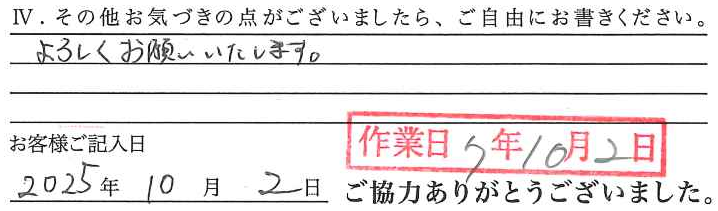 Ⅳ．その他お気づきの点がございましたら、ご自由にお書きください。
よろしくお願いいたします。
お客様ご記入日
作業日 7年10月2日
2025年 10月 2日
ご協力ありがとうございました。